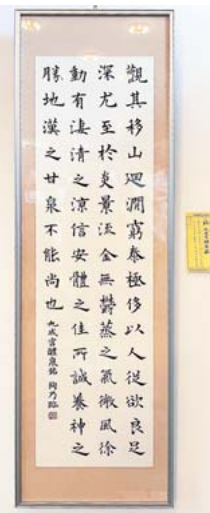 觀其移山迴澗窮泰極侈以人從欲良足
深尤至於炎景流金無鬱蒸之氣微風徐
動有淒清之涼信安體之佳所誠養神之
勝地漢之甘泉不能尚也九成宮醴泉銘